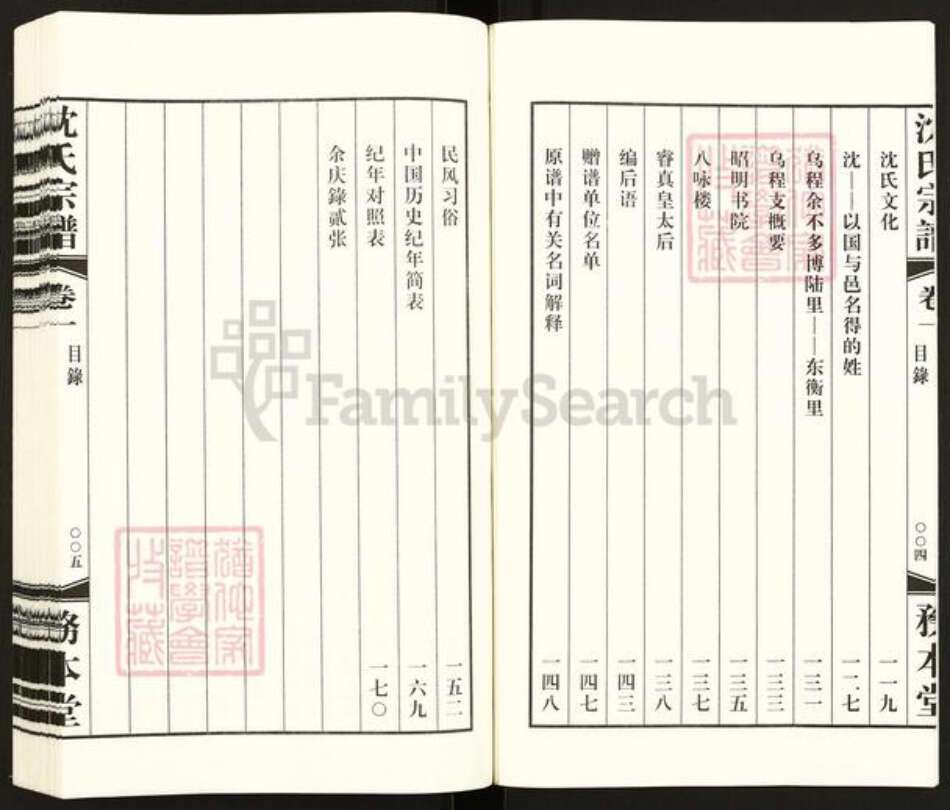 沈氏宗譜 卷一 目錄 〇〇四 務本堂
沈氏文化 一一九
沈——以国与邑名得的姓 一二七
乌程余不乡博陆里——东衡里 一三一
乌程支概要 一三三
昭明书院 一三五
八咏楼 一三七
睿真皇太后 一三八
编后语 一四三
赠谱单位名单 一四七
原谱中有关名词解释 一四八
民风习俗 一五二
中国历史纪年简表 一六九
纪年对照表 一七〇
余庆錄贰张
沈氏宗譜 卷一 目錄 〇〇五 務本堂
譜學會
收藏
FamilySearch